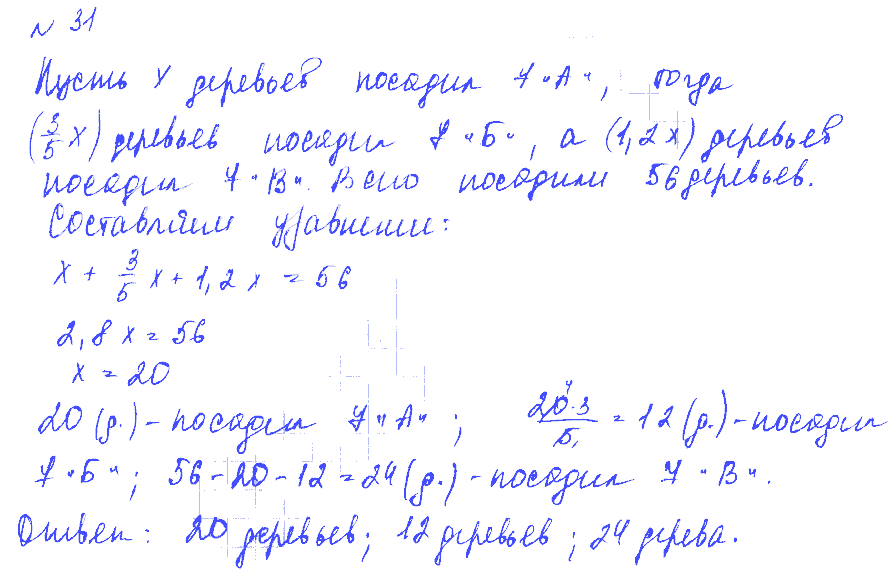 № 31
Пусть x деревьев посадил 7 "А", тогда
(3/5 x) деревьев посадил 7 "Б", а (1,2x) деревьев
посадил 7 "В". Всего посадили 56 деревьев.
Составляем уравнение:
x + 3/5 x + 1,2x = 56
2,8x = 56
x = 20
20 (д.) - посадил 7 "А"; 20⁴·3/5₁ = 12 (д.) - посадил
7 "Б"; 56 - 20 - 12 = 24 (д.) - посадил 7 "В".
Ответ: 20 деревьев; 12 деревьев; 24 дерева.